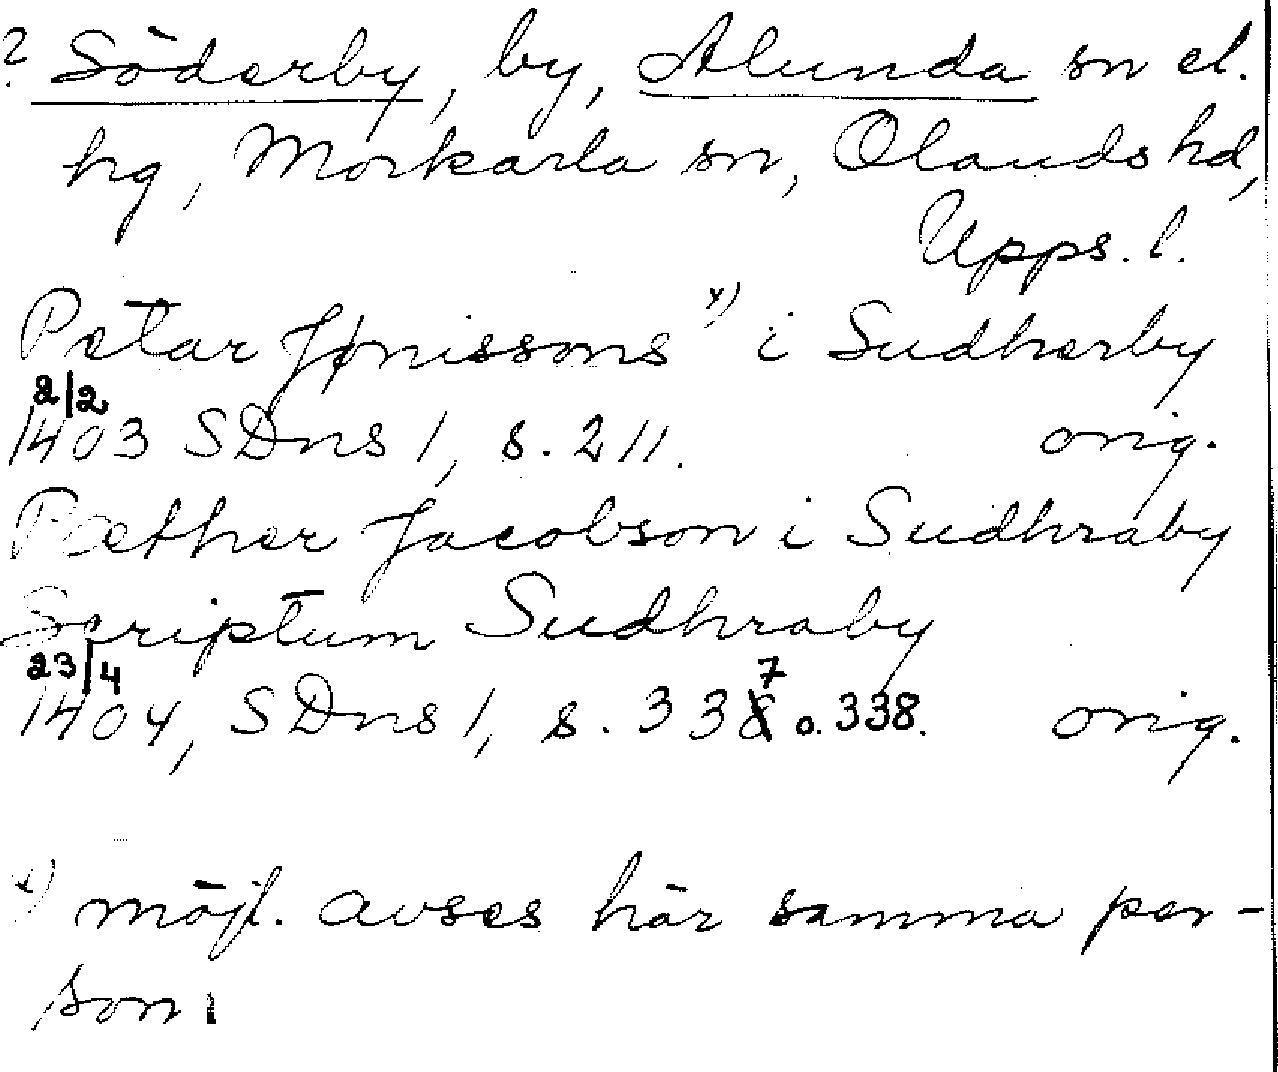 ? Söderby, by, Alunda sn el.
hg, Morkarla sn, Olands hd,
Upps. l.
Petar Jønissons x) i Sudherby
2/2
1403 SDns 1, s. 211. orig.
Pæther Jacobson i Sudhraby
Scriptum Sudhraby
23/4
1404, SDns 1, s. 337 o. 338. orig.
x) möjl. avses här samma per-
son.